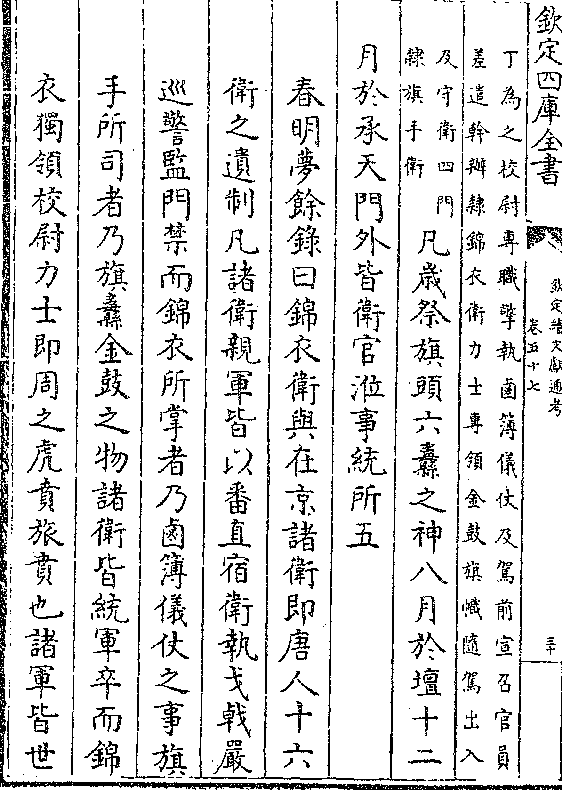 欽定四庫全書
欽定續文獻通考
卷五十七
三十
丁為之校尉專職擎執鹵簿儀仗及駕前宣召官員
差遣幹辦隸錦衣衛力士專領金鼓旗幟隨駕出入
及守衛四門
隸旗手衛
凡歲祭旗頭六纛之神八月於壇十二
月於承天門外皆衛官涖事統所五
春明夢餘錄曰錦衣衛與在京諸衛即唐人十六
衛之遺制凡諸衛親軍皆以番直宿衛執戈戟嚴
巡警監門禁而錦衣所掌者乃鹵簿儀仗之事旗
手所司者乃旗纛金鼓之物諸衛皆統軍卒而錦
衣獨領校尉力士即周之虎賁旅賁也諸軍皆世